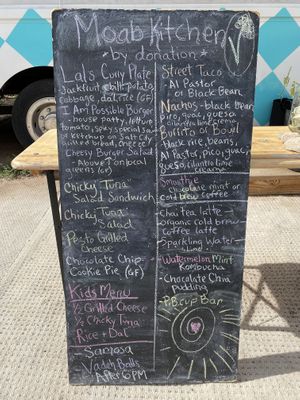 Moab Kitchen
- by donation -
Lal's Curry Plate
Jackfruit, chili potato
cabbage, dal, rice (GF)
I Am Possible Burger
- house patty, lettuce
tomato, spicy special sauce
& ketchup on Salt City
grilled bread, cheese
Cheesy Burger Salad
- Above ↑ on local
greens (GF)
Chicky Tuna
Salad Sandwich
Chicky Tuna
Salad
Pesto Grilled
Cheese
Chocolate Chip
Cookie Pie (GF)
Kids Menu
½ Grilled Cheese
½ Chicky Tuna
Rice + Dal
- Samosa
- Vadah Balls
After 6PM
Street Taco
Al Pastor
or Black Bean
Nachos - black bean
pico, guac, queso
cilantro lime crema
Burrito or Bowl
black rice, beans
Al Pastor, pico, guac,
queso, cilantro lime
crema
Smoothie
chocolate mint or
cold brew coffee
Chai tea latte
organic cold brew
coffee latte
Sparkling Water
Watermelon Mint
Kombucha
- Chocolate Chia
pudding
- P.B. cup Bar